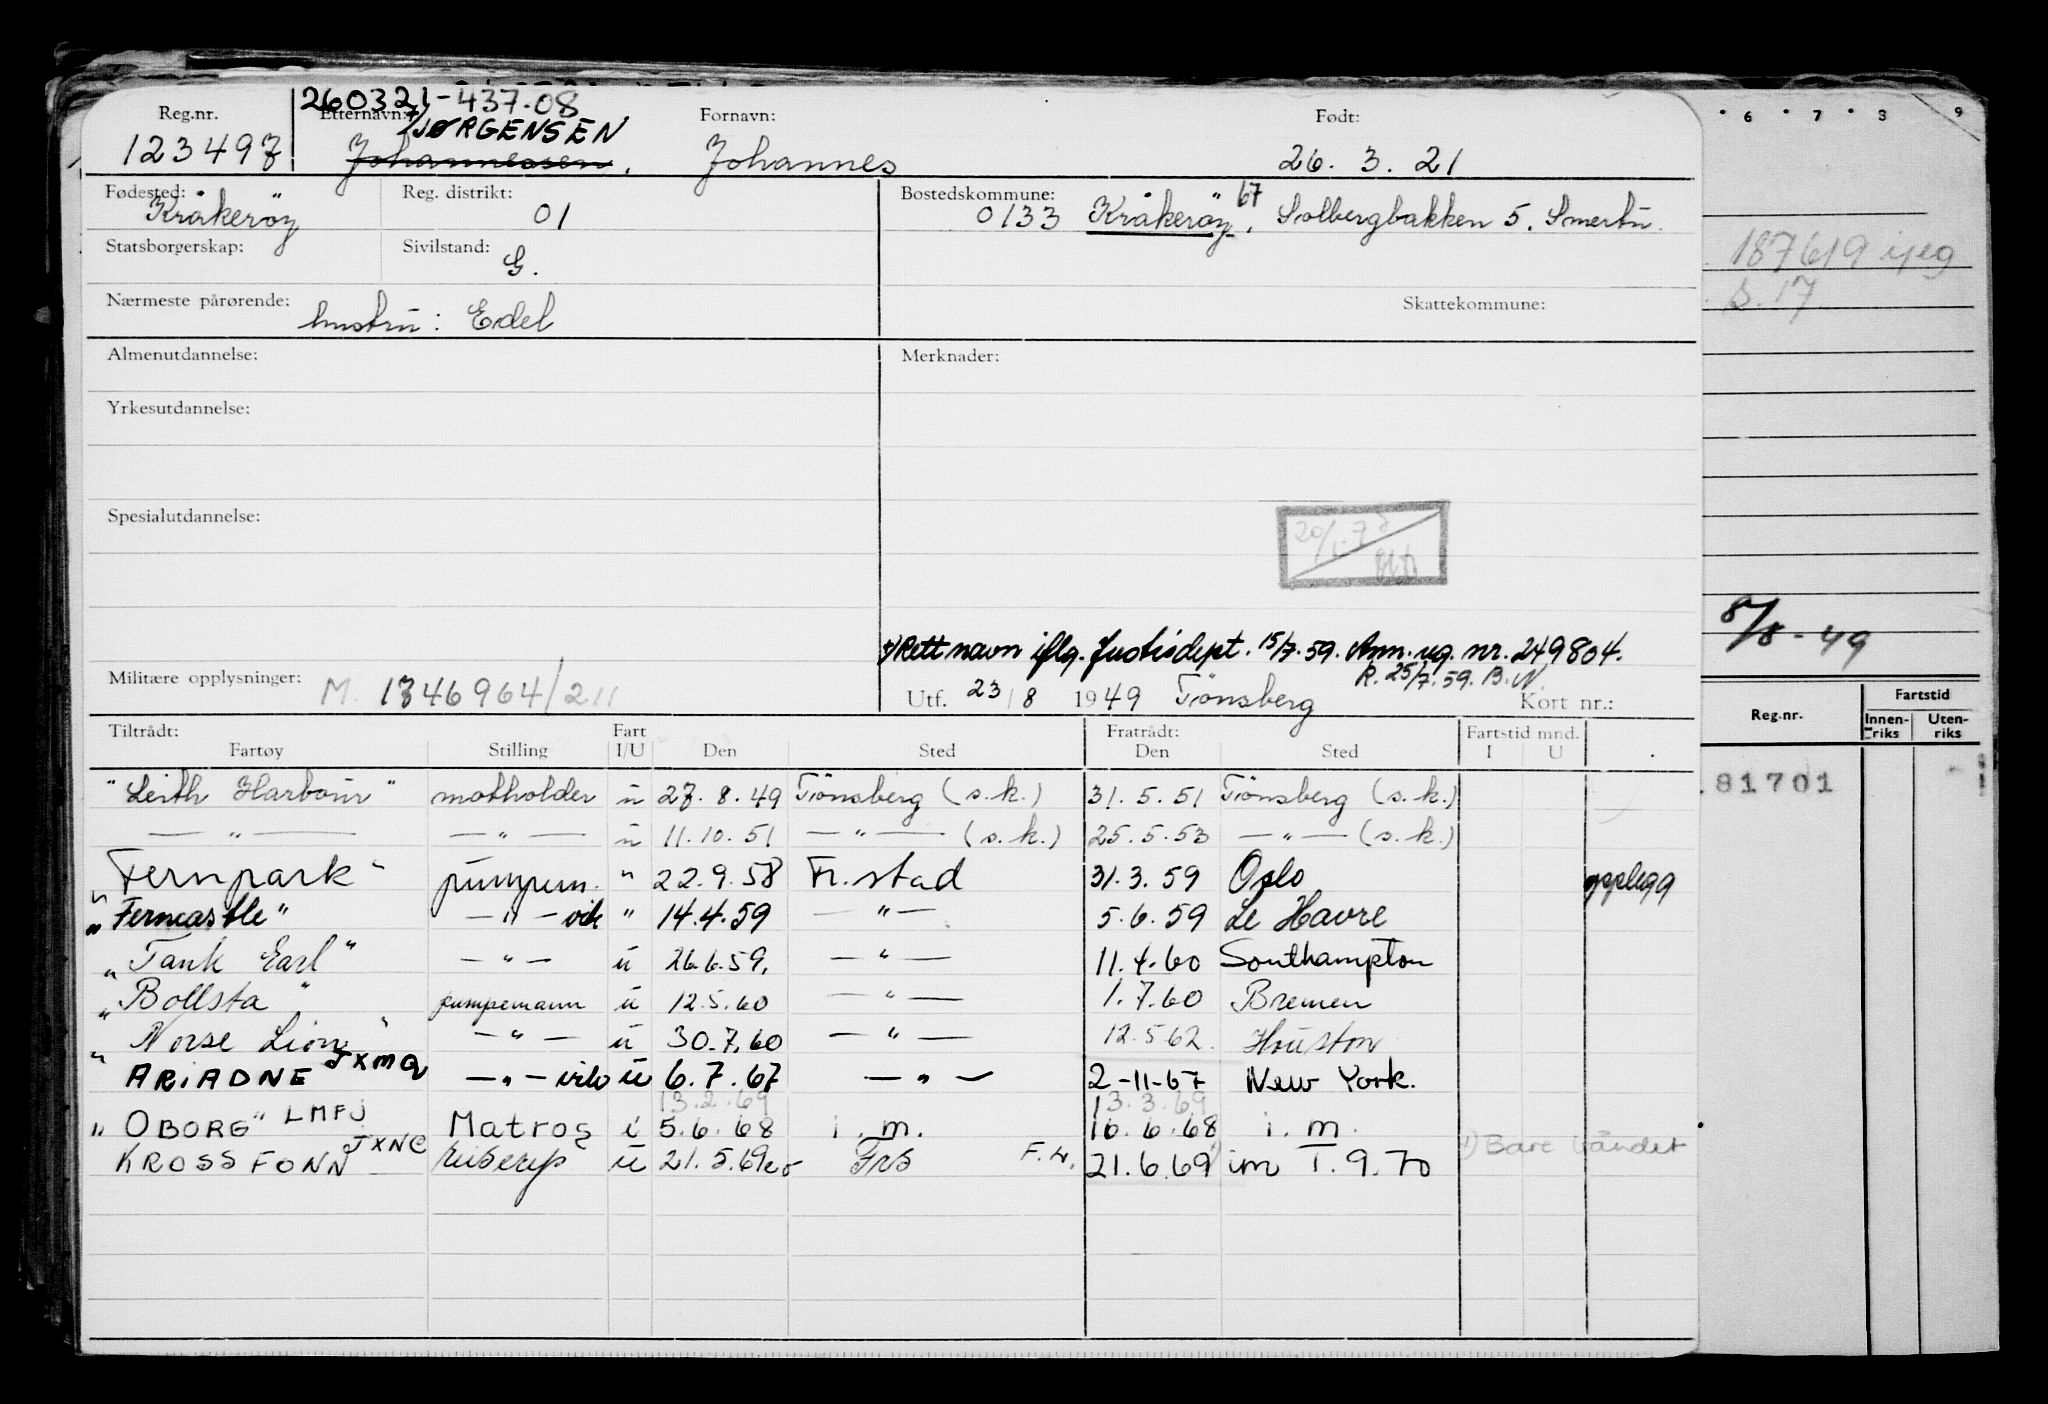 260321-437.08
Reg.nr. Etternavn: Fornavn: Født:
JØRGENSEN
123497 Johannessen, Johannes 26. 3. 21
Fødested: Reg. distrikt: Bostedskommune:
Kråkerøy 01 0133 Kråkerøy, 67 Solbergbakken 5,
Statsborgerskap: Sivilstand:
G.
Nærmeste pårørende: Skattekommune:
hustru: Edel
Almenutdannelse: Merknader:
Yrkesutdannelse:
Spesialutdannelse:
x) Rett navn iflg. Justisdept. 15/7.59. Ann. reg. nr. 249804.
R. 25/7.59. B.N.
Militære opplysninger: M. 1346964/211 Utf. 23/8 1949 Tönsberg Kort nr.:
Tiltrådt: Fart Fratrådt: Fartstid mnd.
Fartøy Stilling I/U Den Sted Den Sted I U
"Leith Harbour" motholder u 27. 8. 49 Tönsberg (s.k.) 31. 5. 51 Tönsberg (s.k.)
— " — — " — u 11. 10. 51 — " — (s.k.) 25. 5. 53 — " — (s.k.)
"Fernpark" pumpem. " 22. 9. 58 Fr.stad 31. 3. 59 Oslo opplegg
"Ferncastle" — " — vik " 14. 4. 59 — " — 5. 6. 59 Le Havre
"Tank Earl" — " — u 26. 6. 59. — " — 11. 4. 60 Southampton
"Bollsta" pumpemann u 12. 5. 60 — " — 1. 7. 60 Bremen
"Norse Lion" — " — u 30. 7. 60 — " — 12. 5 62. Houston
ARIADNE JXMQ — " — u 6. 7. 67 — " — 2-11-67 New York.
13. 2. 69 13. 3. 69
"OBORG" LMFJ Matros i 5. 6. 68 i. m. 16. 6. 68 i. m.
KROSSFONN JXNC u 21. 5. 69 F.W. 21. 6. 69 im T. 9. 70 1) Bare
6 7 3 9
187619
s. 17
8/8-49
Reg.nr. Fartstid
Innen-riks Uten-riks
81701